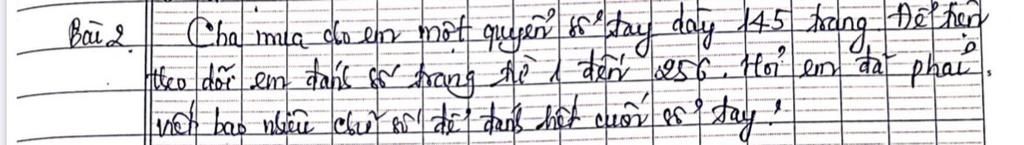 Bài 2. Cha mua cho em một quyển sổ tay dày 145 trang. Để tiện
theo dõi em đánh số trang từ 1 đến 256. Hỏi em đã phải
viết bao nhiêu chữ số để đánh hết cuốn sổ tay?